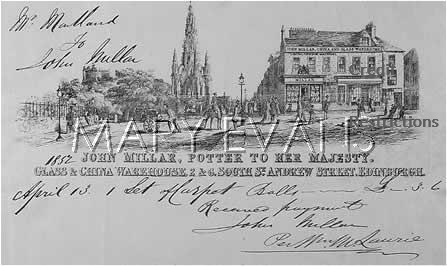 Mr. Maitland
To
John Millar
JOHN MILLAR, CHINA AND GLASS WAREHOUSE
MARY EVANS
1852
JOHN MILLAR, POTTER TO HER MAJESTY.
GLASS & CHINA WAREHOUSE, 2 & 6, SOUTH ST. ANDREW STREET, EDINBURGH.
April 13. 1 Set of Carpet Balls 3.6
Received payment
John Millar
Per Wm. McLaurie